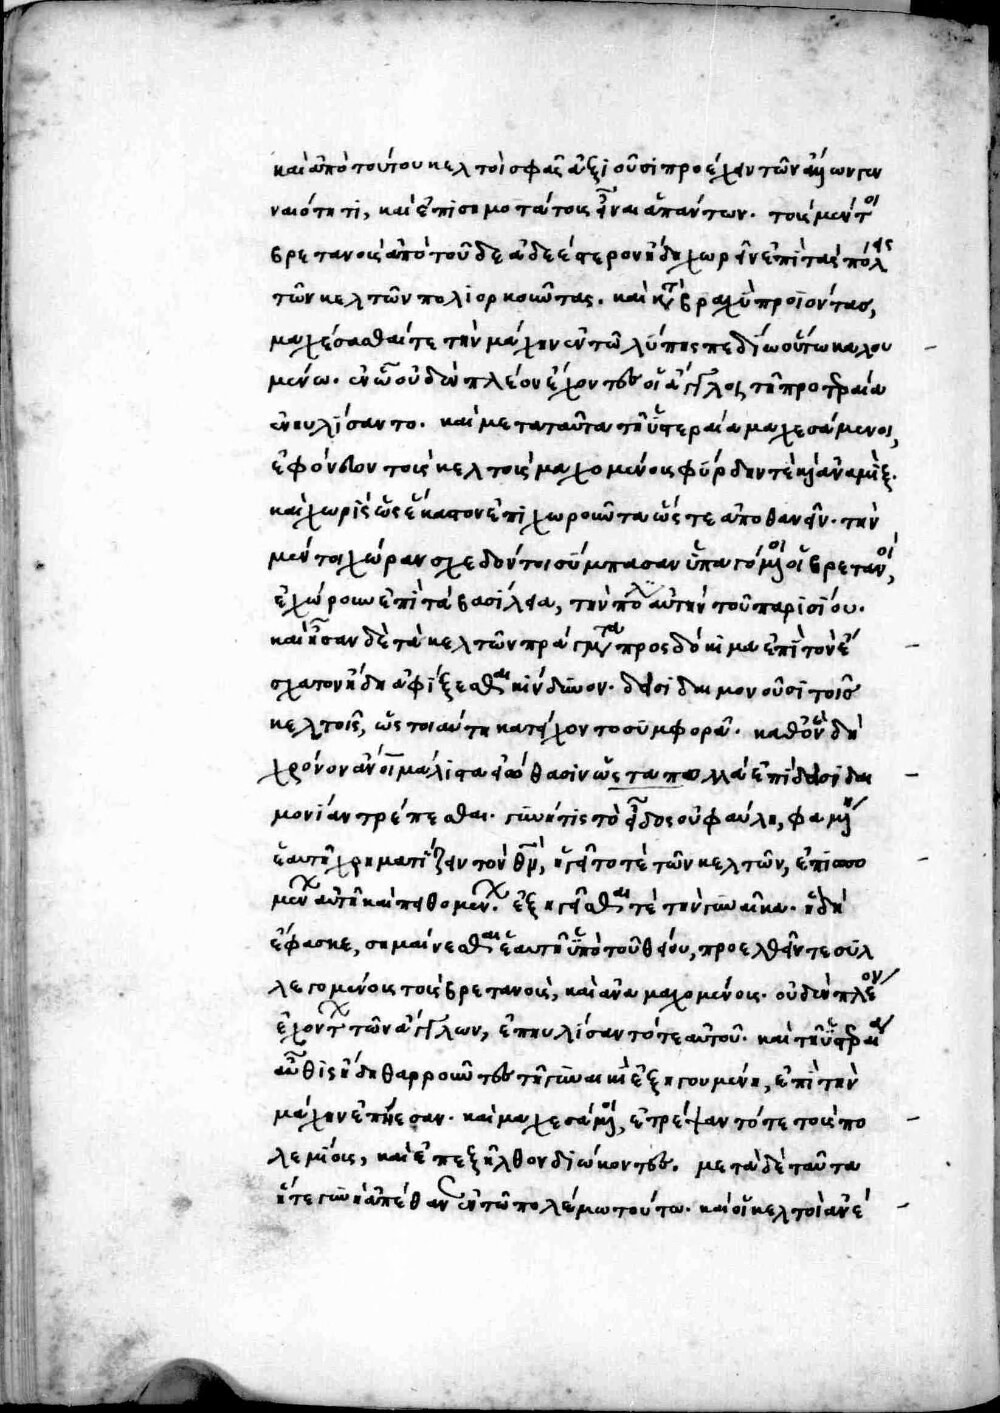 καὶ ἀπὸ τούτου κελτοὶ σφᾶς ἀξιοῦσι προέχειν τῶν ἄλλων γεν
ναιότητι, καὶ ἐπισημοτάτοις εἶναι ἁπάντων. τοὺς μέντοι
βρετανοὺς ἀπὸ τοῦδε ἀδεέστερον ἤδη χωρεῖν ἐπὶ τὰς πόλεις
τῶν κελτῶν πολιορκοῦντας. καὶ κατὰ βραχὺ προϊόντας,
μαχέσασθαί τε τὴν μάχην ἐν τῶ λύπης πεδίω οὕτω καλου
μένω. ἐν ὧ οὐδὲν πλέον ἔχοντες οἱ ἄγγλοι, τῆ προτεραία
ἐπηυλίσαντο. καὶ μετα ταῦτα τῆ ὑστεραία μαχεσάμενοι,
ἐφόνευον τοὺς κελτοὺς μαχομένους φύρδην τὲ καὶ ἀναμὶξ.
καὶ χωρὶς ὡς ἕκαστον ἐπιχωροῦντα ὥστε ἀποθανεῖν. τὴν
μέντοι χώραν σχεδόν τοι σύμπασαν ὑπαγόμενοι οἱ βρετανοί,
ἐχώρουν ἐπὶ τὰ βασίλεια, τὴν πόλιν αὐτὴν τοῦ παρισίου.
καὶ ἦσαν δὲ τὰ κελτῶν πράγματα προσδόκιμα ἐπὶ τὸν ἔ
σχατον ἤδη ἀφίξεσθαι κίνδυνον. δεισιδαιμονοῦσι τοῖς
κελτοῖς, ὡς τοιαύτη κατείχοντο συμφορᾶ. καθὸν δὴ
χρόνον ἄνθρωποι μάλιστα εἰώθασιν ὡς τα πολλὰ ἐπὶ δεισιδαι
μονίαν τρέπεσθαι. γυνή τις τὸ εἶδος οὐ φαύλη, φαμένη
ἑαυτῆ χρηματίζειν τὸν θεόν, ἡγεῖτο τὲ τῶν κελτῶν, ἐπισπο
μένων αὐτῆ καὶ πειθομένων. ἐξηγεῖσθαι τὲ τὴν γυναῖκα. ἣ δὴ
ἔφασκε, σημαίνεσθαι ἑαυτῆ ὑπὸ τοῦ θείου, προελθεῖν τε συλ
λεγομένοις τοὺς βρετανοὺς, καὶ ἀναμαχομένοις. οὐδὲν πλέον
ἐχόντων τῶν ἄγγλων, ἐπηυλίσαντό τε αὐτοῦ. καὶ τῆ ὑστεραία
αὖθις ἤδη θαρροῦντες τῆ γυναικὶ ἐξηγουμένη, ἐπὶ τὴν
μάχην ἐπήεσαν. καὶ μαχεσάμενοι, ἐτρέψαντό τε τοὺς πο
λεμίους, καὶ ἐπεξῆλθον διώκοντες. μετὰ δὲ ταῦτα
ἥτε γυνὴ ἀπέθανεν ἐν τῶ πολέμω τούτω. καὶ οἱ κελτοὶ ἀνέ